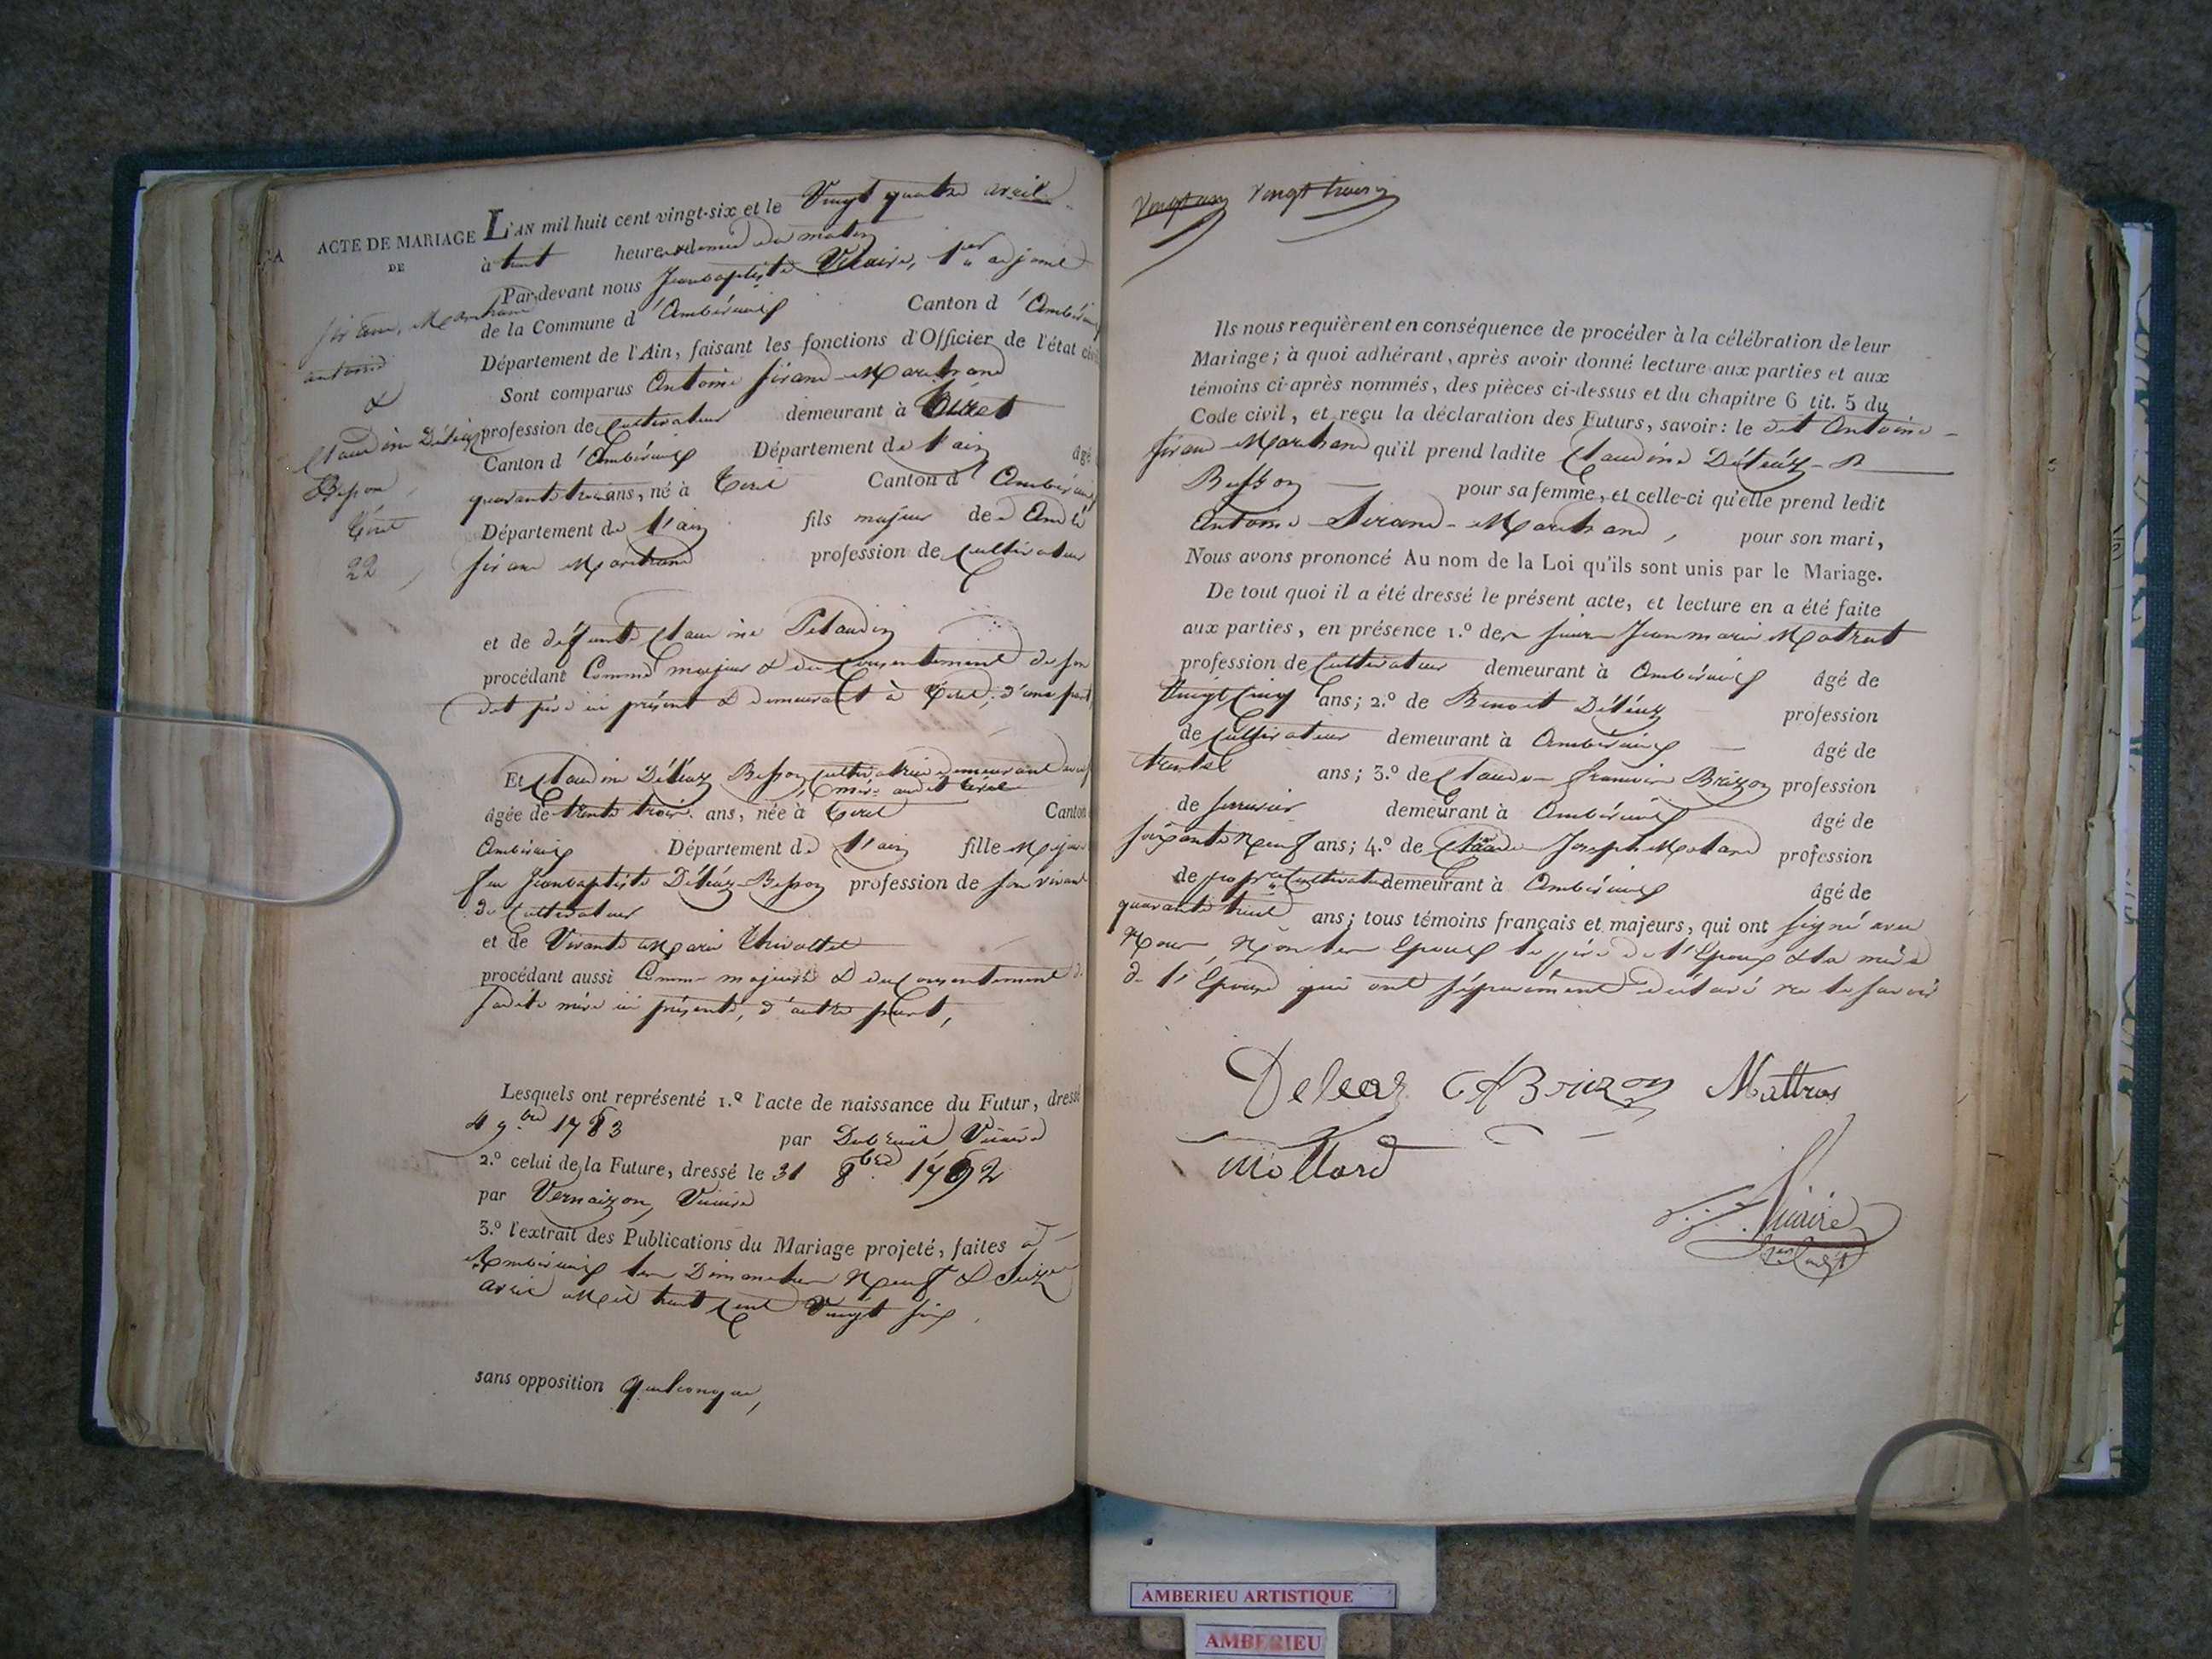 ACTE DE MARIAGE
DE
Sirand, Marchand
antoine
&
Claudine Déléaz
Besson,
Tiret
22
L'AN mil huit cent vingt-six et le Vingt quatre avril
à huit heures du matin
Par-devant nous Jeanbaptiste Vicaire, 1er adjoint
de la Commune d'Ambérieux Canton d'Ambérieux
Département de l'Ain, faisant les fonctions d'Officier de l'état civil
Sont comparus Antoine Sirand-Marchand
profession de Cultivateur demeurant à Tiret
Canton d'Ambérieux Département de l'ain âgé
quarante trois ans, né à Tiret Canton d'Ambérieux
Département de l'ain fils majeur de André
Sirand Marchand profession de Cultivateur
et de défunte Claudine Pelaudin
procédant Comme majeur & du Consentement de son
dit père ici présent & demeurant à Tiret, d'une part
Et Claudine Déléaz Besson cultivatrice demeurant avec sa
mère audit Tiret
âgée de trente trois ans, née à Tiret Canton
Ambérieux Département de l'ain fille Majeure
feu Jeanbaptiste Déléaz-Besson profession de son vivant
de Cultivateur
et de Vivante Marie
procédant aussi Comme majeure & du Consentement de
sadite mère ici présente, d'autre part,
Lesquels ont représenté 1.º l'acte de naissance du Futur, dressé
4 9.bre 1783 par Vicaire
2.º celui de la Future, dressé le 31 8.bre 1792
par Vernaizon, Vicaire
3.º l'extrait des Publications du Mariage projeté, faites à
Ambérieux les Dimanches Neuf & Seize
avril Mil huit Cent Vingt six,
sans opposition quelconque,
Vingt trois
Ils nous requièrent en conséquence de procéder à la célébration de leur
Mariage; à quoi adhérant, après avoir donné lecture aux parties et aux
témoins ci-après nommés, des pièces ci-dessus et du chapitre 6 tit. 5 du
Code civil, et reçu la déclaration des Futurs, savoir: le dit Antoine
Sirand-Marchand qu'il prend ladite Claudine Déléaz-B
Besson pour sa femme, et celle-ci qu'elle prend ledit
Antoine-Sirand-Marchand, pour son mari,
Nous avons prononcé Au nom de la Loi qu'ils sont unis par le Mariage.
De tout quoi il a été dressé le présent acte, et lecture en a été faite
aux parties, en présence 1.º des sieurs Jeanmarie
profession de Cultivateur demeurant à Ambérieux âgé de
Vingt Cinq ans; 2.º de Benoit Déléaz profession
de Cultivateur demeurant à Ambérieux âgé de
trente ans; 3.º de Claude-françois Brizon profession
de serrurier demeurant à Ambérieux âgé de
soixante Neuf ans; 4.º de Claude Joseph Molard profession
de propre Cultivateur demeurant à Ambérieux âgé de
quarante huit ans; tous témoins français et majeurs, qui ont signé avec
Nous Non les Epoux le père de l'Epoux & la mère
de l'Epouse qui ont séparément déclaré ne le savoir
Deleaz CF Brizon Mattras
Mollard
Vicaire
AMBERIEU ARTISTIQUE
AMBERIEU